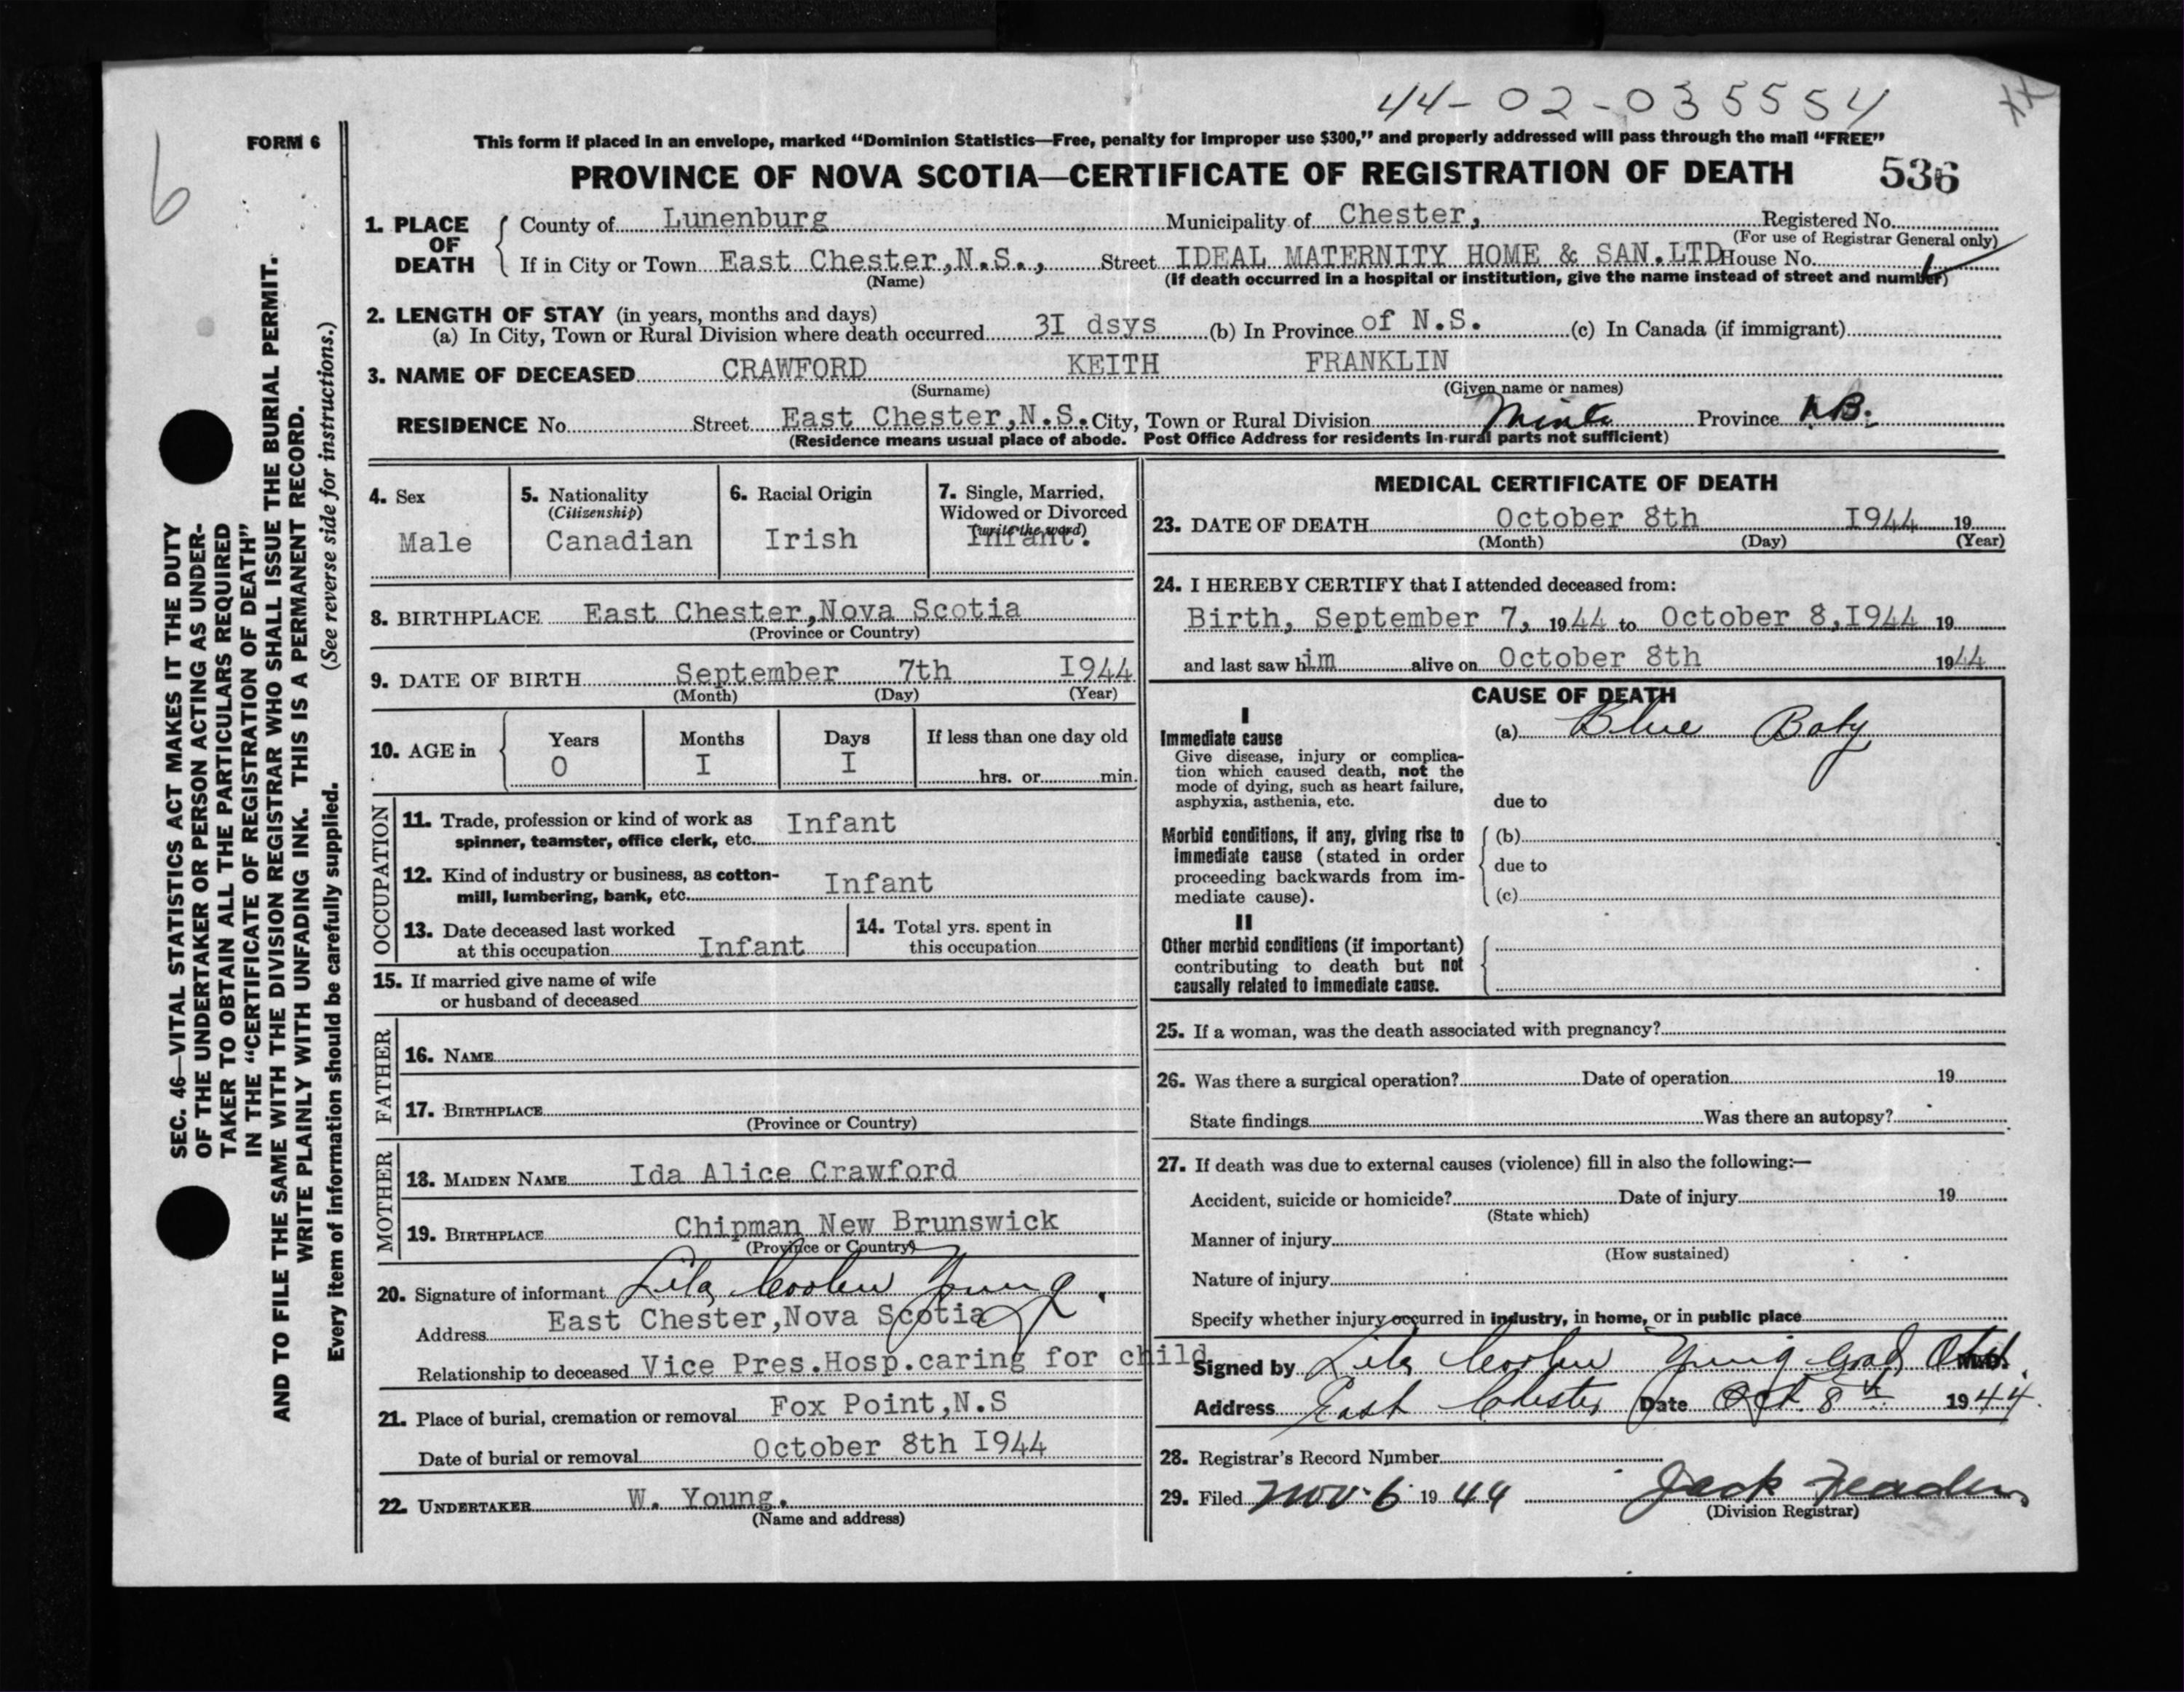 44-02-035554
XX
6
FORM 6
This form if placed in an envelope, marked “Dominion Statistics—Free, penalty for improper use $300,” and properly addressed will pass through the mail “FREE”
PROVINCE OF NOVA SCOTIA—CERTIFICATE OF REGISTRATION OF DEATH 536
SEC. 46—VITAL STATISTICS ACT MAKES IT THE DUTY
OF THE UNDERTAKER OR PERSON ACTING AS UNDER-
TAKER TO OBTAIN ALL THE PARTICULARS REQUIRED
IN THE “CERTIFICATE OF REGISTRATION OF DEATH”
AND TO FILE THE SAME WITH THE DIVISION REGISTRAR WHO SHALL ISSUE THE BURIAL PERMIT.
WRITE PLAINLY WITH UNFADING INK. THIS IS A PERMANENT RECORD.
Every item of information should be carefully supplied. (See reverse side for instructions.)
1. PLACE OF DEATH
County of Lunenburg Municipality of Chester, Registered No.
(For use of Registrar General only)
If in City or Town East Chester,N.S., Street IDEAL MATERNITY HOME & SAN.LTD House No.
(Name) (If death occurred in a hospital or institution, give the name instead of street and number)
2. LENGTH OF STAY (in years, months and days)
(a) In City, Town or Rural Division where death occurred 3I dsys (b) In Province of N.S. (c) In Canada (if immigrant)
3. NAME OF DECEASED CRAWFORD KEITH FRANKLIN
(Surname) (Given name or names)
RESIDENCE No. Street East Chester,N.S. City, Town or Rural Division Minto Province N.B.
(Residence means usual place of abode. Post Office Address for residents in rural parts not sufficient)
4. Sex
Male
5. Nationality
(Citizenship)
Canadian
6. Racial Origin
Irish
7. Single, Married,
Widowed or Divorced
(write the word)
Infant.
8. BIRTHPLACE East Chester,Nova Scotia
(Province or Country)
9. DATE OF BIRTH September 7th I944
(Month) (Day) (Year)
10. AGE in
Years Months Days If less than one day old
O I I hrs. or min.
OCCUPATION
11. Trade, profession or kind of work as
spinner, teamster, office clerk, etc. Infant
12. Kind of industry or business, as cotton-
mill, lumbering, bank, etc. Infant
13. Date deceased last worked
at this occupation Infant
14. Total yrs. spent in
this occupation
15. If married give name of wife
or husband of deceased
FATHER
16. NAME
17. BIRTHPLACE
(Province or Country)
MOTHER
18. MAIDEN NAME Ida Alice Crawford
19. BIRTHPLACE Chipman New Brunswick
(Province or Country)
20. Signature of informant Lila Coolen Young.
Address East Chester,Nova Scotia
Relationship to deceased Vice Pres.Hosp.caring for child
21. Place of burial, cremation or removal Fox Point,N.S
Date of burial or removal October 8th I944
22. UNDERTAKER W. Young.
(Name and address)
MEDICAL CERTIFICATE OF DEATH
23. DATE OF DEATH October 8th I944 19
(Month) (Day) (Year)
24. I HEREBY CERTIFY that I attended deceased from:
Birth, September 7, 1944 to October 8,I944 19
and last saw him alive on October 8th 1944
CAUSE OF DEATH
I
Immediate cause
Give disease, injury or complica-
tion which caused death, not the
mode of dying, such as heart failure,
asphyxia, asthenia, etc.
(a) Blue Baby
due to
Morbid conditions, if any, giving rise to
immediate cause (stated in order
proceeding backwards from im-
mediate cause).
(b)
due to
(c)
II
Other morbid conditions (if important)
contributing to death but not
causally related to immediate cause.
25. If a woman, was the death associated with pregnancy?
26. Was there a surgical operation? Date of operation 19
State findings Was there an autopsy?
27. If death was due to external causes (violence) fill in also the following:—
Accident, suicide or homicide? Date of injury 19
(State which)
Manner of injury
(How sustained)
Nature of injury
Specify whether injury occurred in industry, in home, or in public place
Signed by Lila Coolen Young Grad. Obst. M.D.
Address East Chester Date Oct. 8th 1944.
28. Registrar’s Record Number
29. Filed Nov. 6 1944 Jack
(Division Registrar)